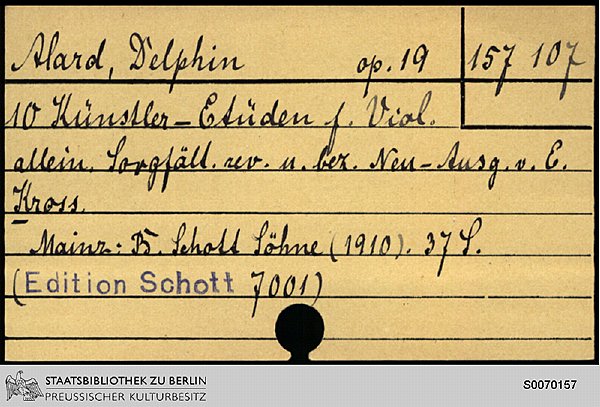 Alard, Delphin op. 19 157 107
10 Künstler-Etüden f. Viol.
allein. Sorgfält. rev. u. bez. Neu-Ausg. v. E.
Kross.
Mainz: B. Schott Söhne (1910). 37 S.
(Edition Schott 7001)
STAATSBIBLIOTHEK ZU BERLIN
PREUSSISCHER KULTURBESITZ
S0070157